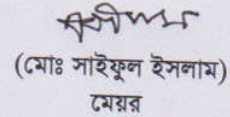 (মোঃ সাইফুল ইসলাম)
মেয়র